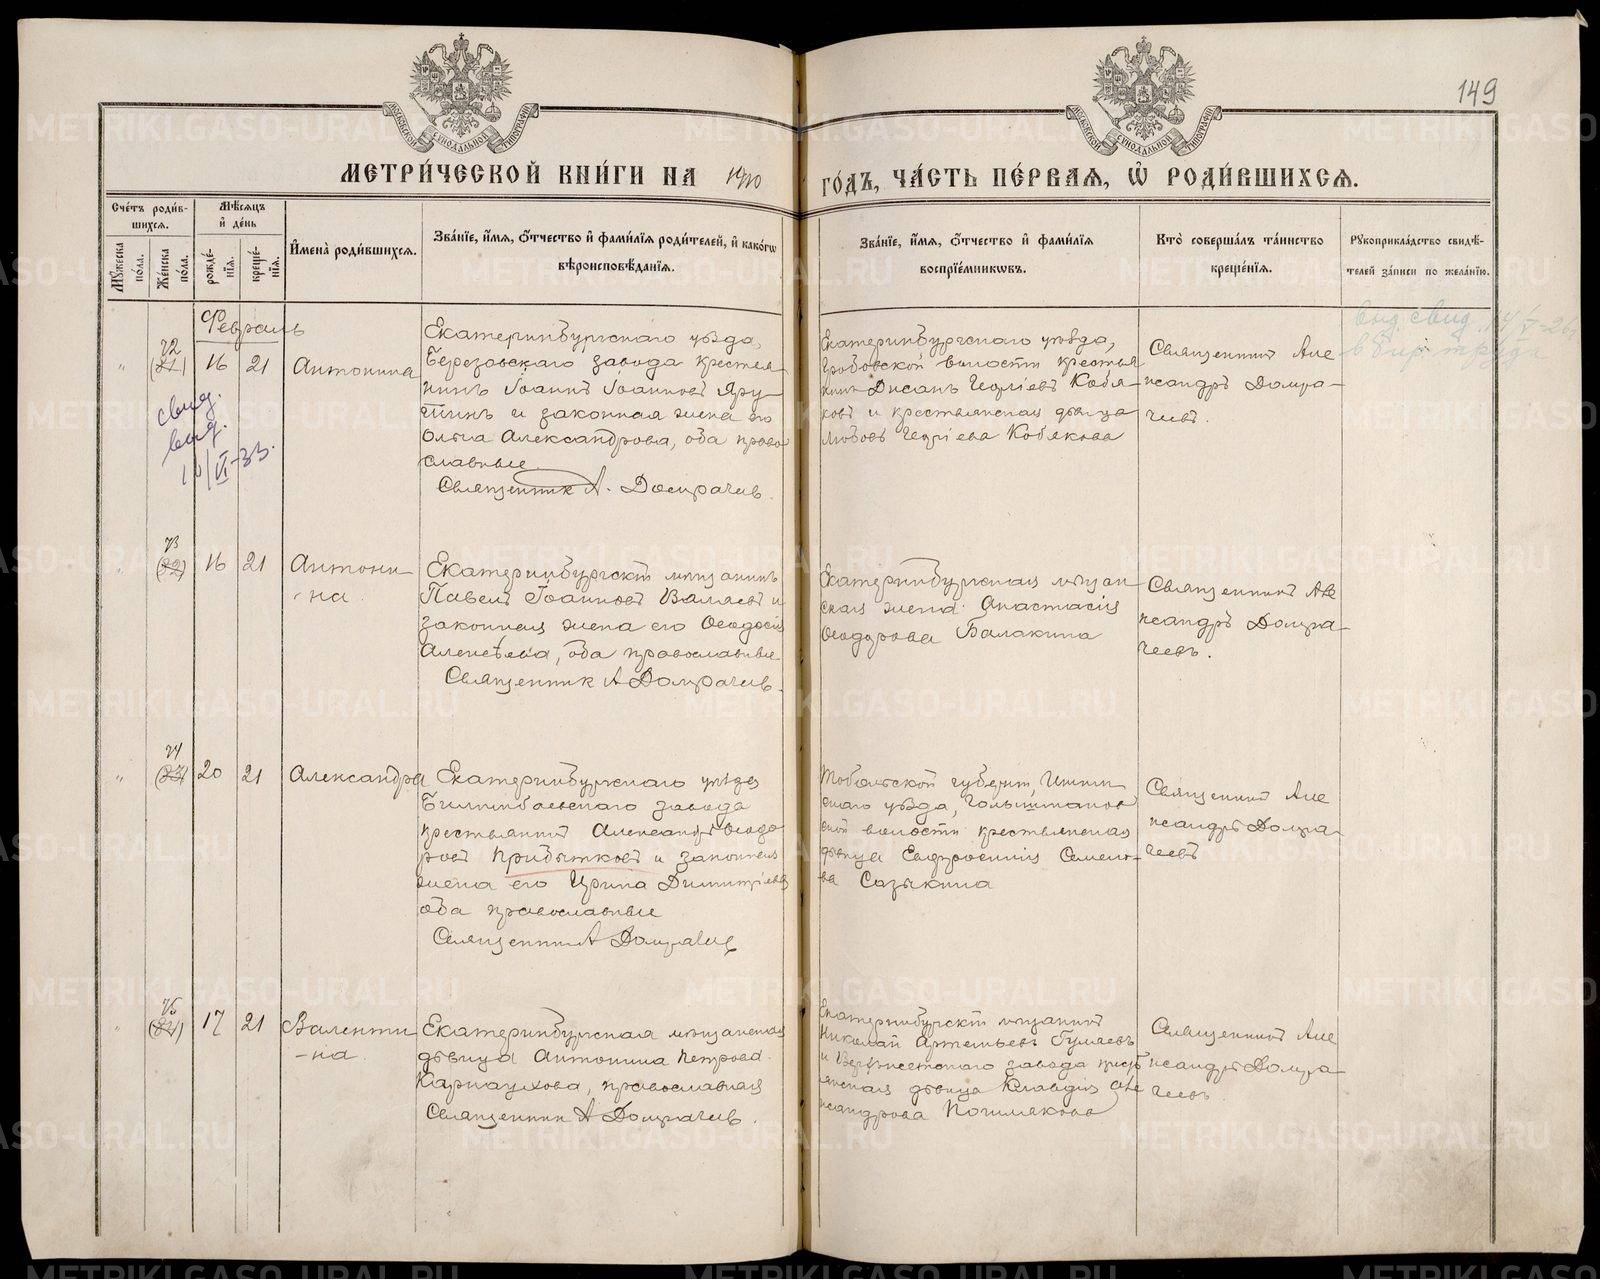 149
МОСКОВСКОЙ СѴНОДАЛЬНОЙ ТИПОГРАФІИ
МОСКОВСКОЙ СѴНОДАЛЬНОЙ ТИПОГРАФІИ
МЕТРИ́ЧЕСКОЙ КНИ́ГИ НА 1910 ГО́ДЪ, ЧА́СТЬ ПЕ́РВАЯ, Ѡ҆ РОДИ́ВШИХСЯ.
Сче́тъ роди́в-
шихся.
Мѣ́сяцъ
и҆ де́нь
Мꙋ́жеска по́ла.
Же́нска по́ла.
рожде́-
нїя.
креще́-
нїя.
И҆мена̀ роди́вшихся.
Зва́нїе, и҆́мя, ѻ҆́тчество и҆ фами́лїя роди́телей, и҆ како́гѡ
вѣроисповѣ́данїя.
Зва́нїе, и҆́мя, ѻ҆́тчество и҆ фами́лїя
воспрїе́мникѡвъ.
Кто̀ соверша́лъ та́инство
креще́нїя.
Рꙋкоприкла́дство свидѣ́-
телей за́писи по жела́нїю.
Февраль
72
(81)
16
21
Антонина
Екатеринбургскаго уѣзда,
Березовскаго завода крестья-
нинъ Іоаннъ Іоанновъ Яру-
шинъ и законная жена его
Ольга Александрова, оба право
славные
Священник А. Домрачев.
Екатеринбургскаго уѣзда,
Гробовской волости крестья
нинъ Георгіевъ Кобя-
ковъ и крестьянская дѣвица
Любовь Георгіева Кобякова
Священникъ Але
ксандръ Домра-
чевъ.
выд. свид. 14/V-26
в бир. труда
свид.
выд.
10/VI-33.
73
(82)
16
21
Антони-
-на
Екатеринбургскій мѣщанинъ
Павелъ Іоанновъ Валяевъ и
законная жена его Ѳеодосія
Алексѣева, оба православные
Священник А Домрачев.
Екатеринбургская мѣщан
ская жена Анастасія
Ѳеодорова Балакина
Священникъ Але
ксандръ Домра-
чевъ.
74
(83)
20
21
Александра
Екатеринбургскаго уѣзда
Билимбаевскаго завода
крестьянинъ Александръ Ѳеодо
ровъ Прибытковъ и законная
жена его Ирина Димитріева
оба православные
Священник А Домрачев
Тобольской губерніи, Ишим
скаго уѣзда, Голышманов
ской волости крестьянская
дѣвица Евфросинія Семено-
ва Сазыкина
Священникъ Але
ксандръ Домра-
чевъ
75
(84)
17
21
Валенти
-на
Екатеринбургская мѣщанская
дѣвица Антонина Петрова
Карнаухова, православная
Священник А Домрачев.
Екатеринбургскій мѣщанинъ
Николай Артемьевъ Гуляевъ
и Верхъисетскаго завода крест
янская дѣвица Клавдія Але
ксандрова
Священникъ Але
ксандръ Домра
чевъ
METRIKI.GASO-URAL.RU